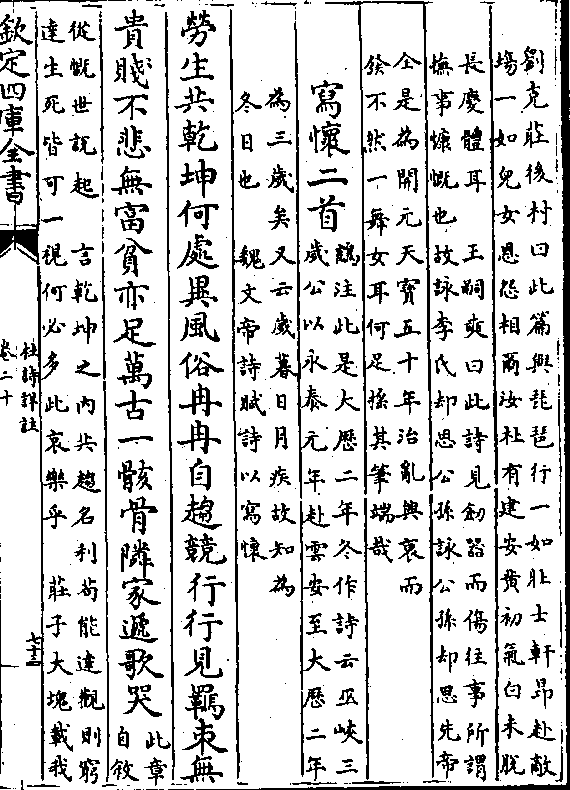 劉克莊後村曰此篇與琵琶行一如壯士軒昂赴敵
塲一如兒女恩怨相爾汝杜有建安黃初氣白未脫
長慶體耳　王嗣奭曰此詩見劒器而傷往事所謂
撫事慷慨也故詠李氏却思公孫詠公孫却思先帝
全是為開元天寶五十年治亂興衰而
發不然一舞女耳何足搖其筆端哉
寫懷二首
鶴注此是大歷二年冬作詩云巫峽三
歲公以永泰元年赴雲安至大歷二年
為三歲矣又云歲暮日月疾故知為
冬日也　魏文帝詩賦詩以寫懷
勞生共乾坤何處異風俗冉冉自趨競行行見羈束無
貴賤不悲無富貧亦足萬古一骸骨隣家遞歌哭
此章
自敘
從慨世説起　言乾坤之内共趨名利茍能達觀則窮
達生死皆可一視何必多此哀樂乎　莊子大塊載我
欽定四庫全書
杜詩詳註
卷二十
七十三